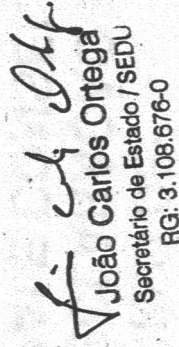 João Carlos Ortega
Secretário de Estado / SEDU
RG: 3.108.676-0